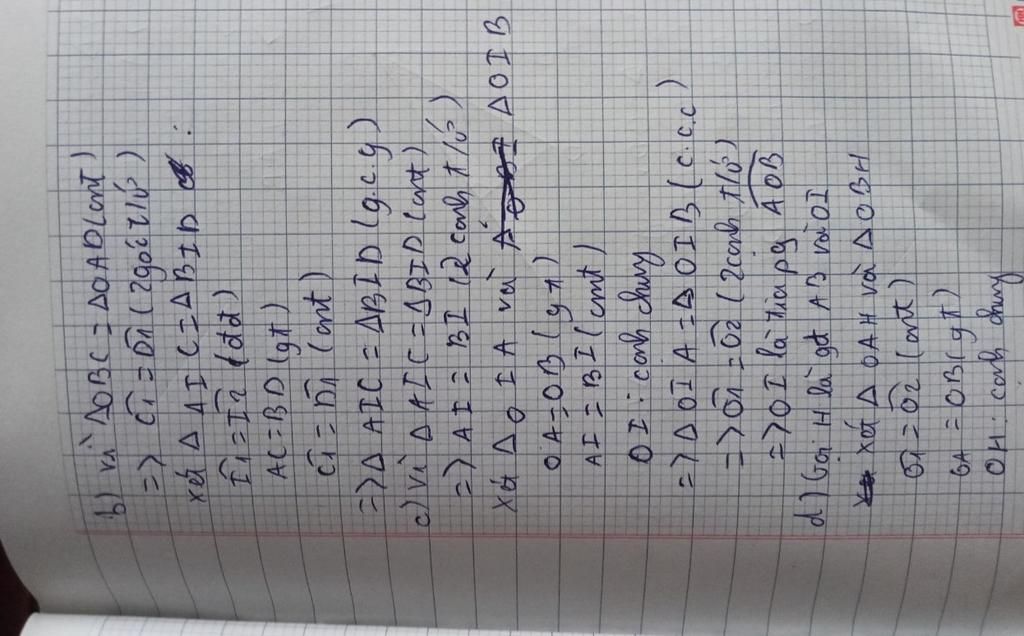 b) vì ΔOBC = ΔOAD (cmt)
=> Ĉ1 = D̂1 (2 góc t/ứ)
xét Δ AIC = ΔBID :
Î1 = Î2 (đđ)
AC = BD (gt)
Ĉ1 = D̂1 (cmt)
=> Δ AIC = ΔBID (g.c.g)
c) vì Δ AIC = ΔBID (cmt)
=> AI = BI (2 cạnh t/ứ)
Xét Δ OIA và Δ OIB
OA = OB (gt)
AI = BI (cmt)
OI : cạnh chung
=> Δ OIA = Δ OIB (c.c.c)
=> Ô1 = Ô2 (2 cạnh t/ứ)
=> OI là tia pg AOB
d) Gọi H là gđ AB và OI
xét Δ OAH và Δ OBH
Ô1 = Ô2 (cmt)
OA = OB (gt)
OH : cạnh chung